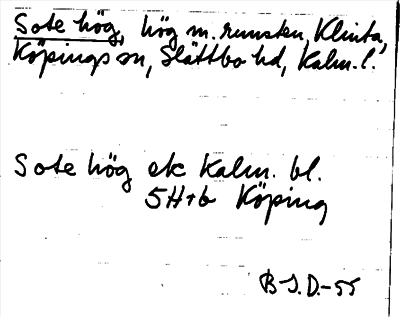 Sote hög, hög m. runsten, Klinta,
Köpings sn, Slättbo hd, Kalm. l.
Sote hög ek Kalm. bl.
5H+b Köping
B-J.D.-55